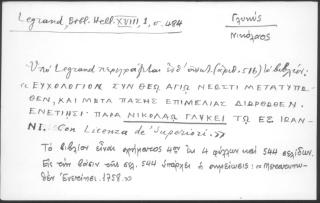 Legrand, Bibl. Hell. XVIII, 1, σ. 484
Γλυκύς
Νικόλαος
Ὑπὸ Legrand περιγράφεται ὑπ' ἀριθ. 516) τὸ βιβλίον:
« ΕΥΧΟΛΟΓΙΟΝ ΣΥΝ ΘΕΩ ΑΓΙΩ ΝΕΩΣΤΙ ΜΕΤΑΤΥΠΩ-
ΘΕΝ, ΚΑΙ ΜΕΤΑ ΠΑΣΗΣ ΕΠΙΜΕΛΕΙΑΣ ΔΙΟΡΘΩΘΕΝ.
ΕΝΕΤΙΗΣΙ. ΠΑΡΑ ΝΙΚΟΛΑΩ ΓΛΥΚΕΙ ΤΩ ΕΞ ΙΩΑΝ-
ΝΙ. Con Licenza de' Superiori. »
Τὸ βιβλίον εἶναι σχήματος 4ον ἐκ 4 φύλλων καὶ 544 σελίδων.
Εἰς τὴν βάσιν τῆς σελ. 544 ὑπάρχει ἡ σημείωσις: «
Ἐνετίησι. 1758. »